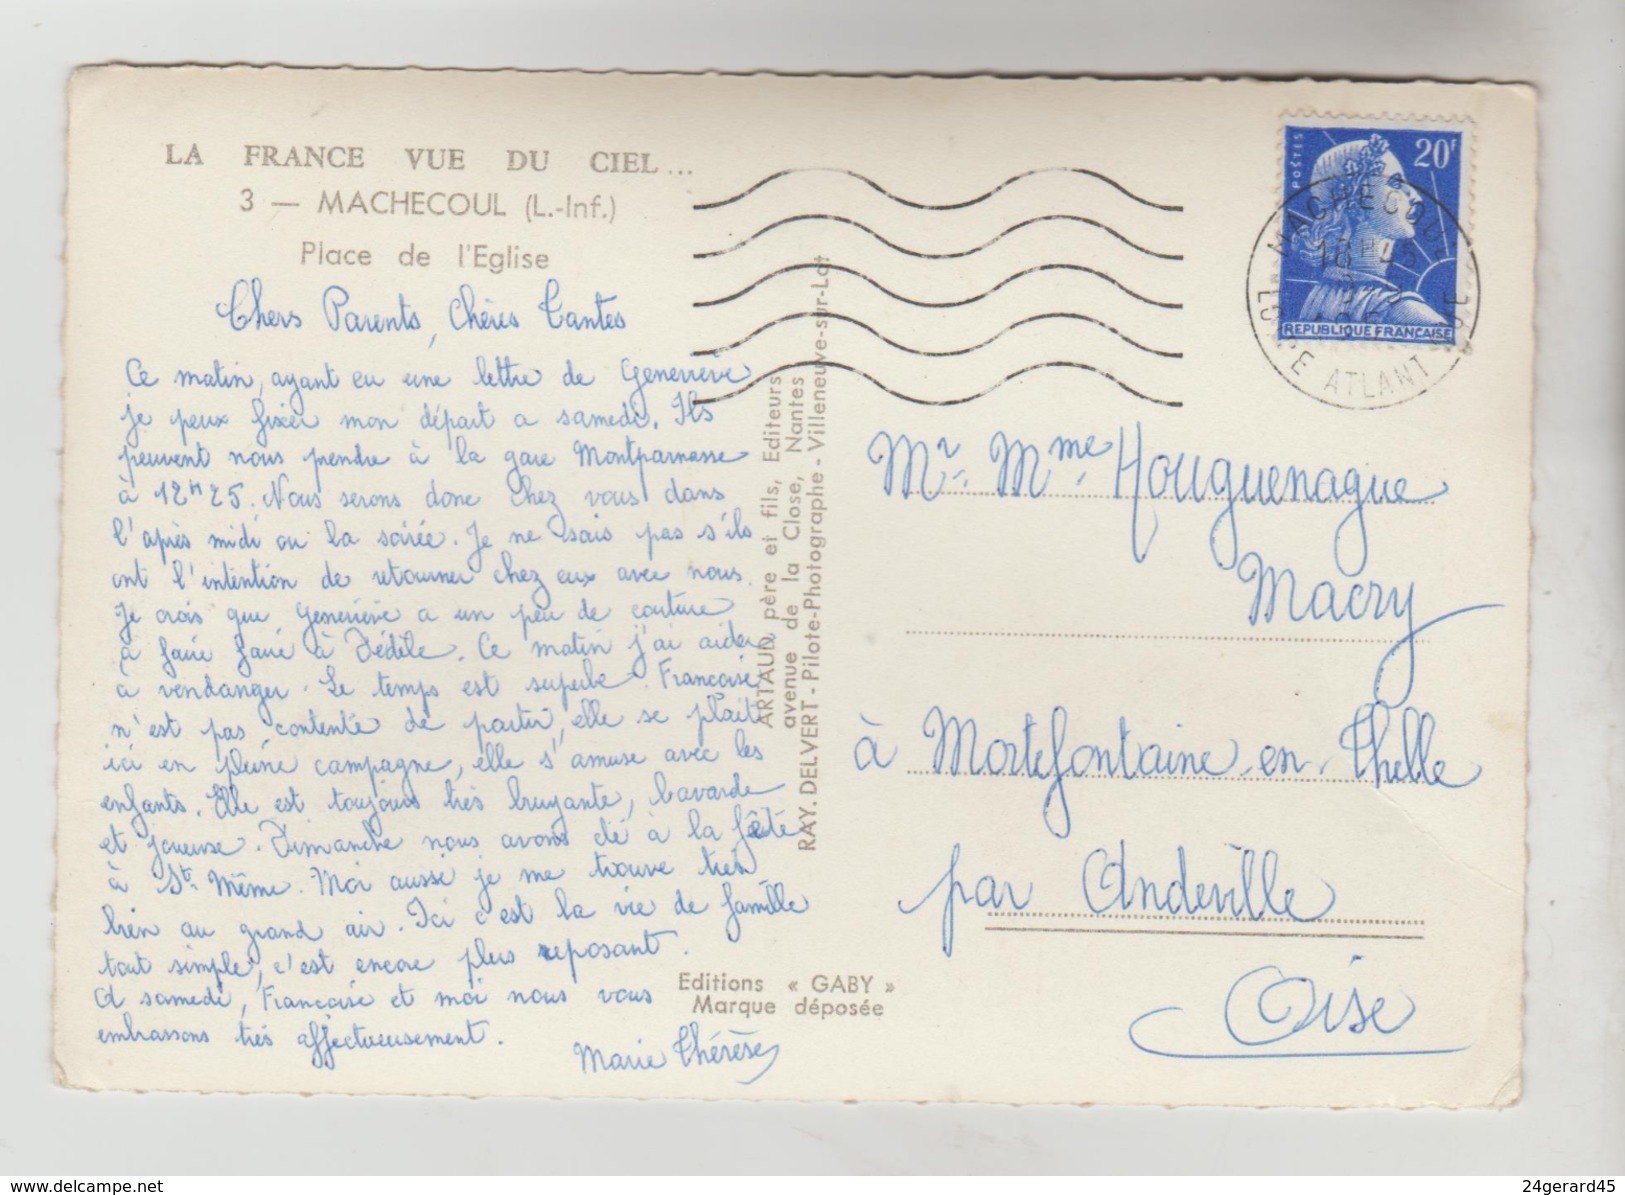 LA FRANCE VUE DU CIEL...
3 — MACHECOUL (L.-Inf.)
Place de l'Eglise
Chers Parents, Chères Tantes
Ce matin, ayant eu une lettre de Geneviève
je peux fixer mon départ a samedi. Ils
peuvent nous prendre à la gare Montparnasse
à 12H25. Nous serons donc chez vous dans
l'après midi ou la soirée. Je ne sais pas s'ils
ont l'intention de retourner chez eux avec nous.
Je crois que Geneviève a un peu de couture
à faire faire à Dédèle. Ce matin j'ai aider
à vendanger. Le temps est superbe. Francoise
n'est pas contente de partir, elle se plait
ici en pleine campagne, elle s'amuse avec les
enfants. Elle est toujours très bruyante, bavarde
et joueuse. Dimanche nous avons été à la fête
à St. Même. Moi aussi je me trouve très
bien au grand air. Ici c'est la vie de famille
tout simple, c'est encore plus reposant.
A samedi, Francoise et moi nous vous
embrassons très affectueusement.
Marie Thérèse
ARTAUD, père et fils, Editeurs
avenue de la Close, Nantes
RAY. DELVERT - Pilote-Photographe - Villeneuve-sur-Lot
Editions « GABY »
Marque déposée
POSTES
20F
REPUBLIQUE FRANCAISE
MACHECOUL
18H45
LOIRE ATLANTIQUE
Mr. Mme Houguenague
Macry
à Mortefontaine-en-Thelle
par Andeville
Oise
www.delcampe.net
24gerard45